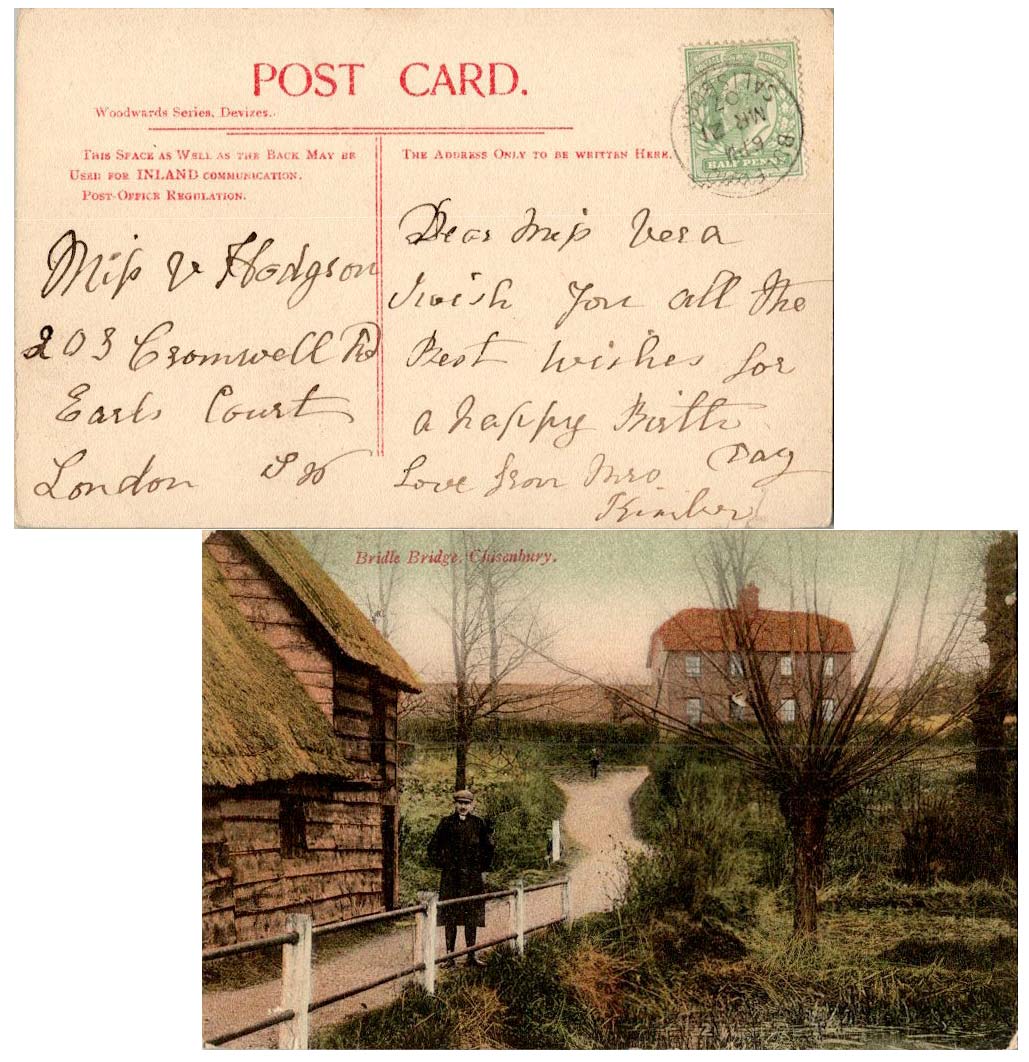 POST CARD.
Woodwards Series, Devizes.
THIS SPACE AS WELL AS THE BACK MAY BE
USED FOR INLAND COMMUNICATION.
POST-OFFICE REGULATION.
THE ADDRESS ONLY TO BE WRITTEN HERE.
HALF PENNY
6 PM
MR 21
07
SAL
Miss V Hodgson
203 Cromwell Rd
Earls Court
London S W
Dear Miss Vera
I wish You all the
Best wishes for
a happy Birth
Day
Love from Mrs
Kimber
Bridle Bridge, Chisenbury.